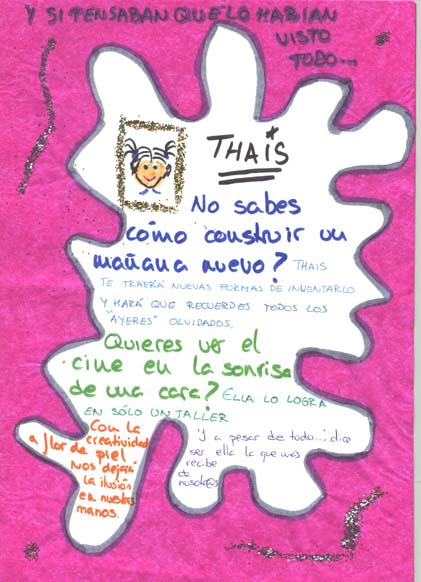 Y SI PENSABAN QUE LO HABÍAN
VISTO
TODO...
THAIS
No sabes
cómo construir un
mañana nuevo? THAIS
TE TRAERÁ NUEVAS FORMAS DE INVENTARLO
Y HARÁ QUE RECUERDES TODOS LOS
"AYERES" OLVIDADOS.
Quieres ver el
cine en la sonrisa
de una cara? ELLA LO LOGRA
EN SÓLO UN TALLER
Con la
creatividad
a flor de piel
nos dejará
la ilusión
en nuestras
manos.
Y a pesar de todo... dice
ser ella la que más
recibe
de
nosotr@s